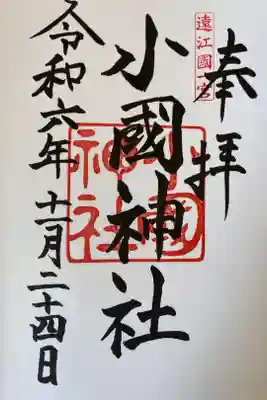 遠江國一宮
奉拝
小國神社
小國神社
令和六年十一月二十四日